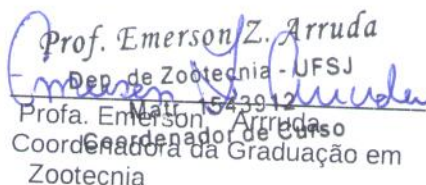 Prof. Emerson Z. Arruda
Dep. de Zootecnia - UFSJ
Matr. 1543912
Coordenador de Curso
Profa. Emerson Arrruda
Coordenadora da Graduação em
Zootecnia